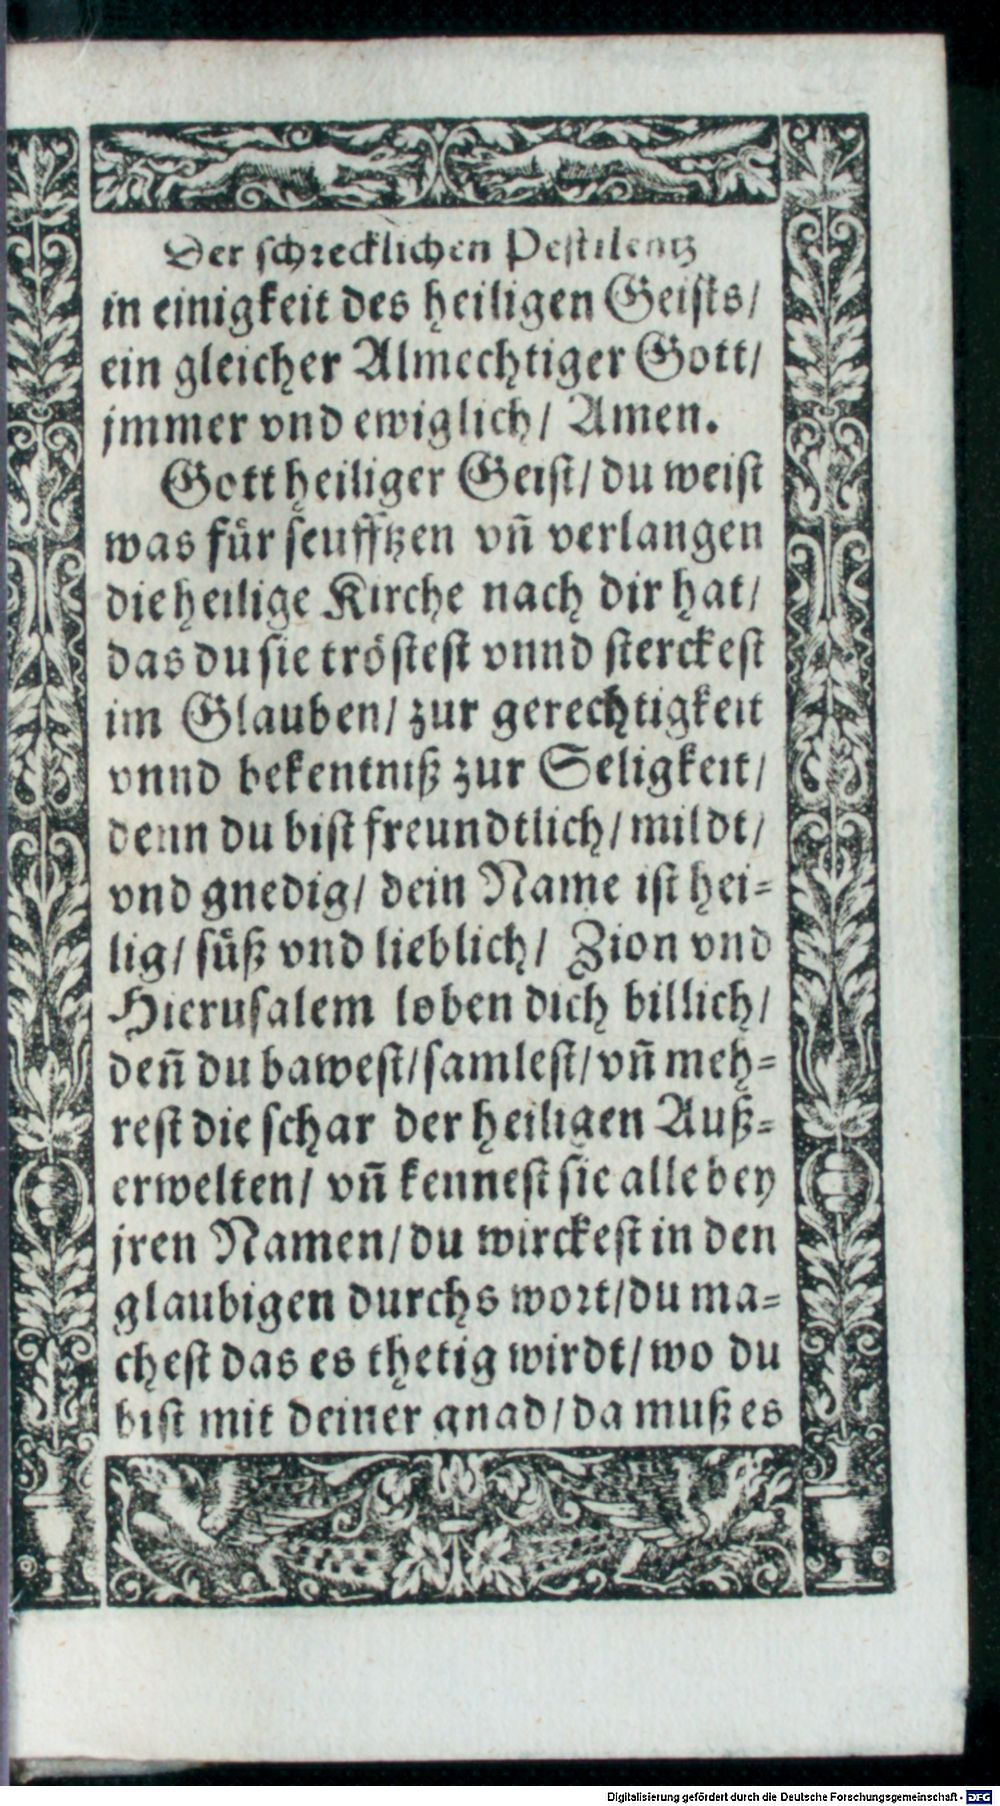 Der schrecklichen Pestilentz
in einigkeit des heiligen Geists/
ein gleicher Almechtiger Gott/
jmmer vnd ewiglich/ Amen.
Gott heiliger Geist/ du weist
was für seufftzen vñ verlangen
die heilige Kirche nach dir hat/
das du sie tröstest vnnd sterckest
im Glauben/ zur gerechtigkeit
vnnd bekentniß zur Seligkeit/
denn du bist freundtlich/ mildt/
vnd gnedig/ dein Name ist hei=
lig/ süß vnd lieblich/ Zion vnd
Hierusalem loben dich billich/
deñ du bawest/ samlest/ vñ meh=
rest die schar der heiligen Auß=
erwelten/ vñ kennest sie alle bey
jren Namen/ du wirckest in den
glaubigen durchs wort/ du ma=
chest das es thetig wirdt/ wo du
bist mit deiner gnad/ da muß es
Digitalisierung gefördert durch die Deutsche Forschungsgemeinschaft - DFG